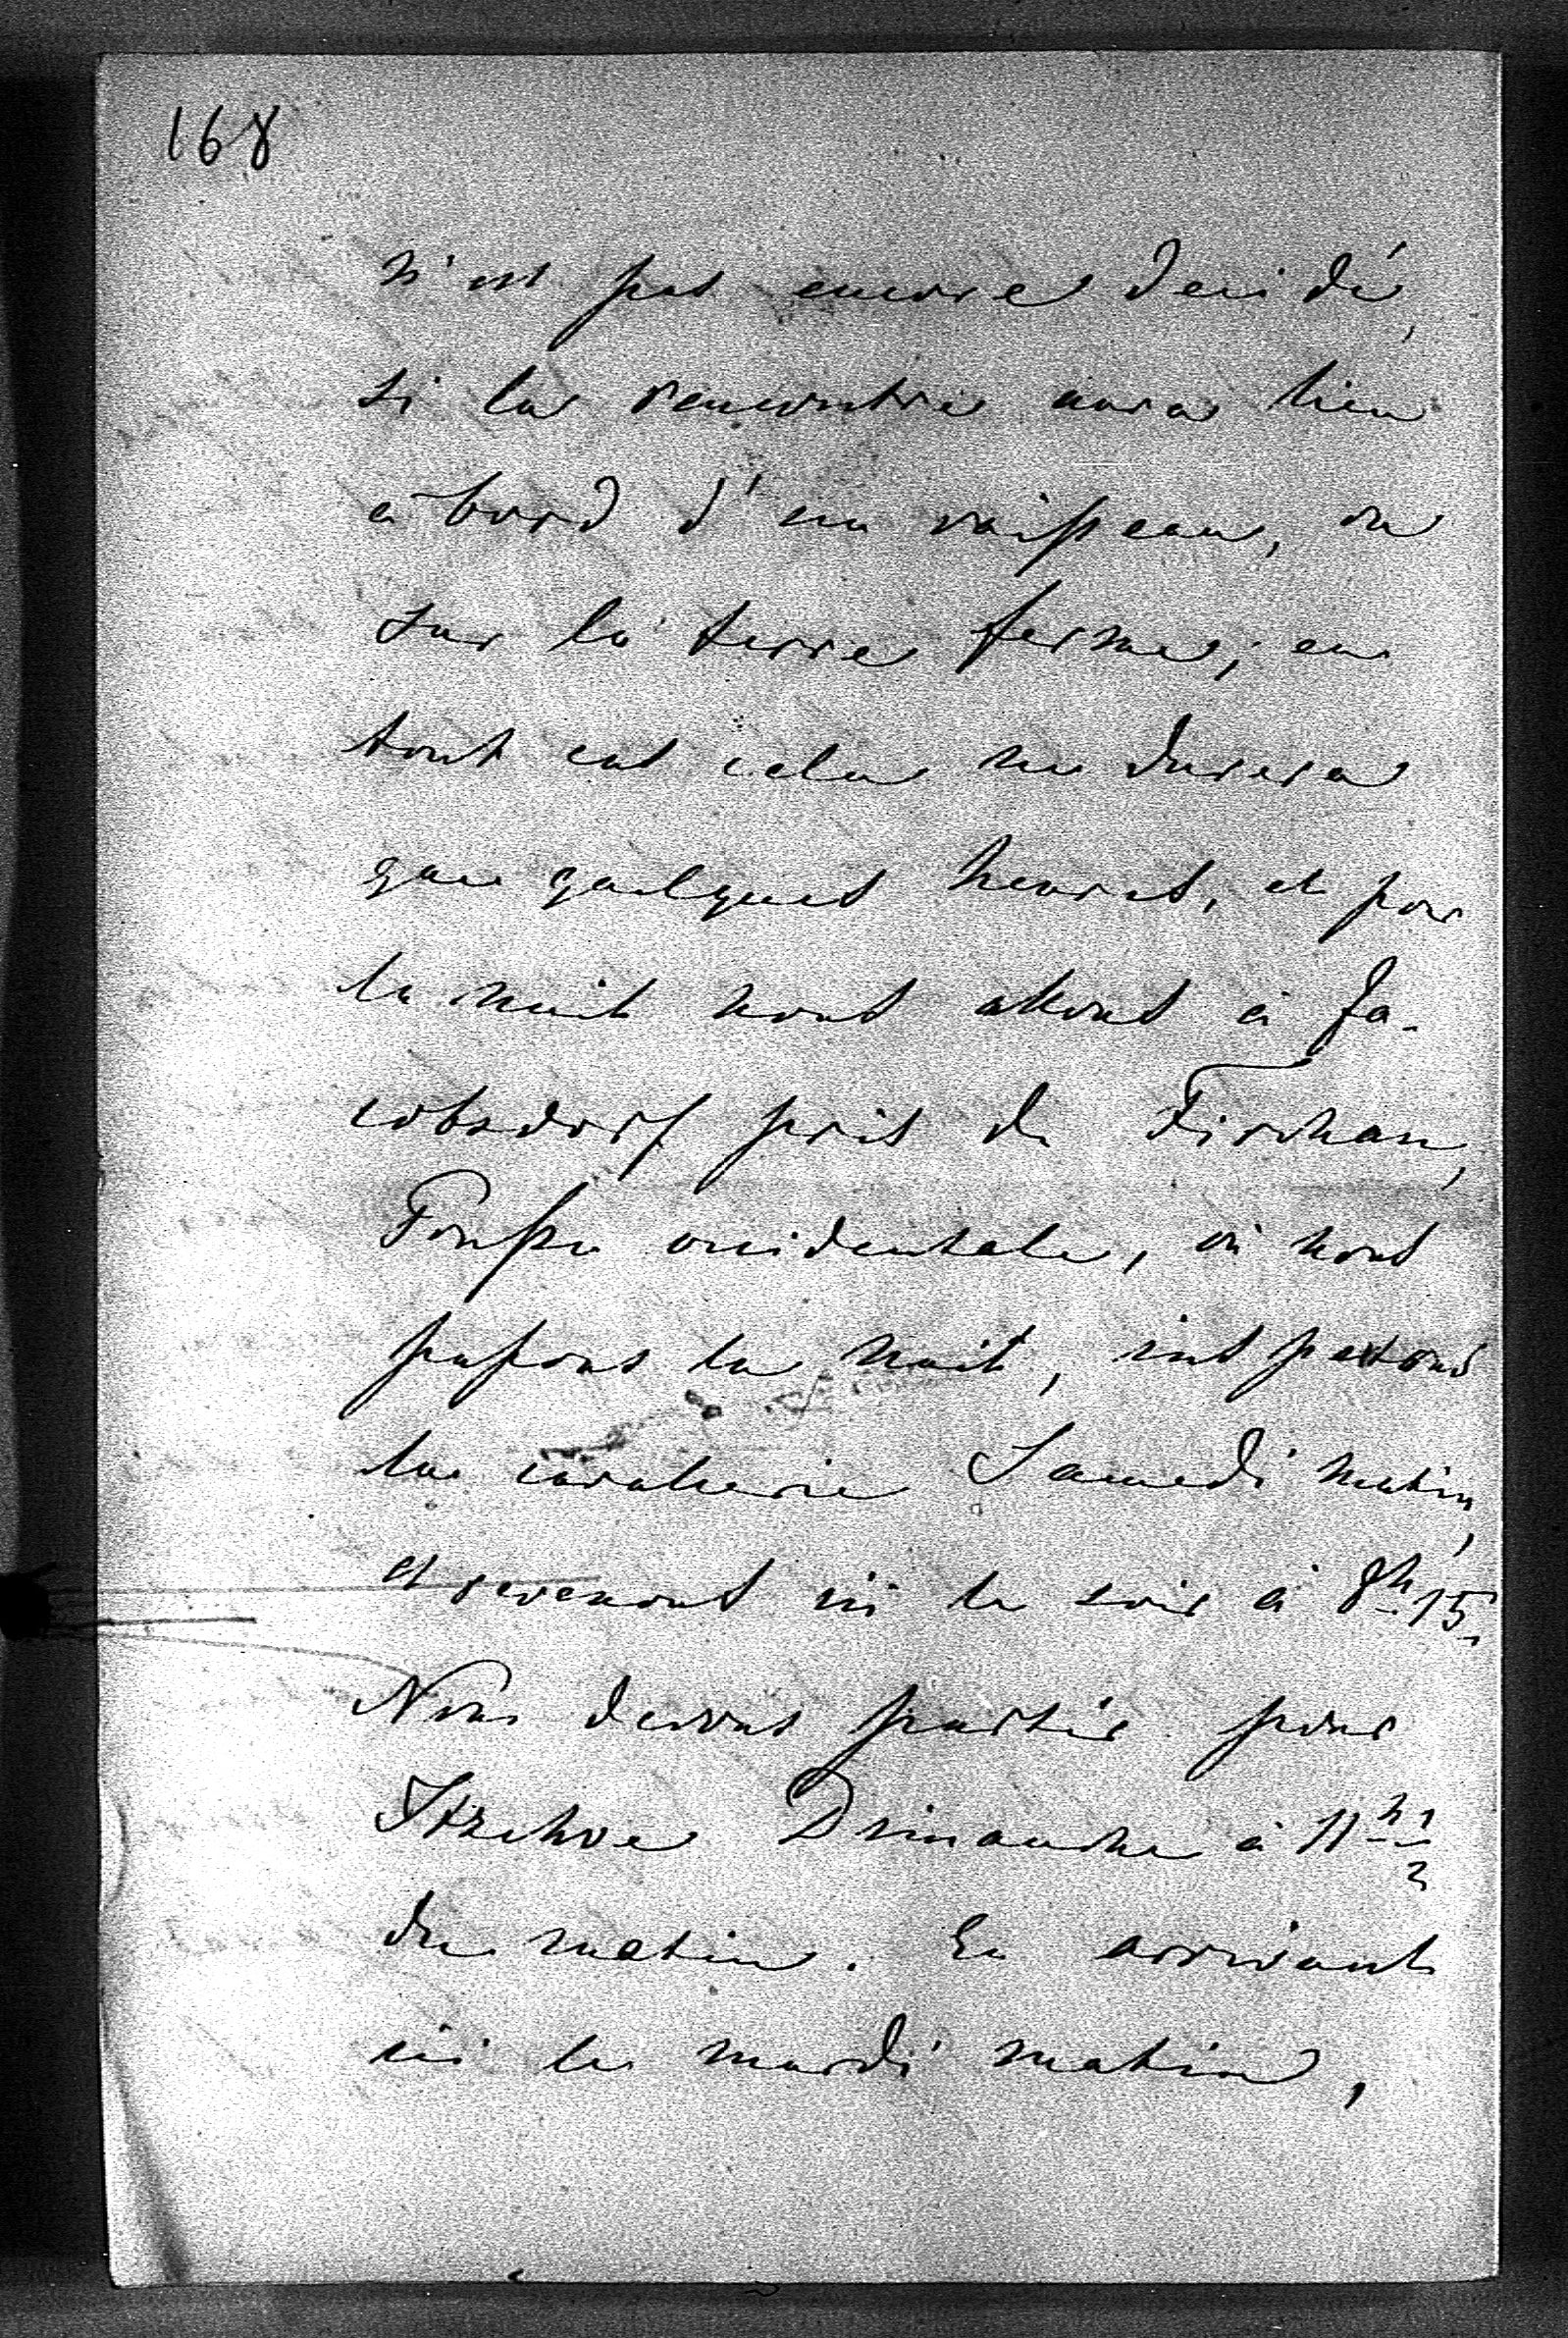 168
n'est pas encore decidé,
si la rencontre aura lieu
à bord d'un vaisseau, ou
sur la terre ferme; en
tout cas cela ne durera
que quelques heures, et pour
la nuit nous allons à Ja-
cobsdorf près de Firchau,
Prusse occidentale, où nous
passons la nuit, inspectons
la cavalerie Samedi matin,
et revenons ici le soir à 8h 15.
Nous devons partir pour
Itzehoe Dimanche à 11h 1/2
du matin. En arrivant
ici le mardi matin,